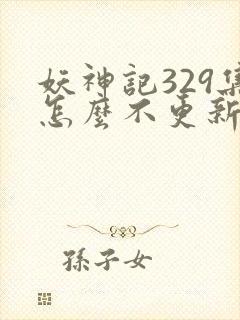 妖神記329集
怎麼不更新
孫子女